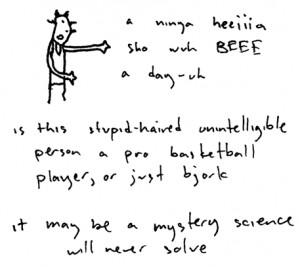 a ninga heeiiia
sho wuh BEEE
a day-uh
is this stupid-haired unintelligible
person a pro basketball
player, or just bjork
it may be a mystery science
will never solve